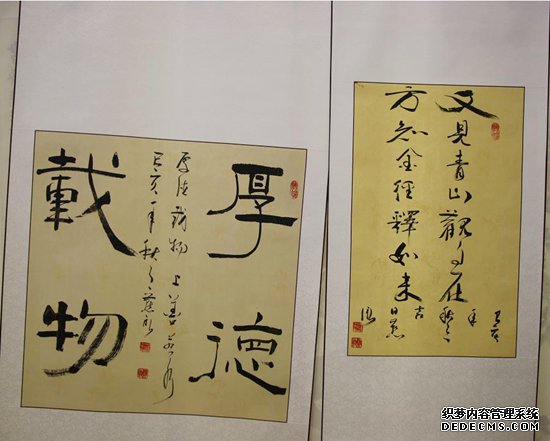 厚德
載物
厚德載物 上善若水
又見青山觀自在
方知金經釋如来
织梦内容管理系统
DEDECMS.COM